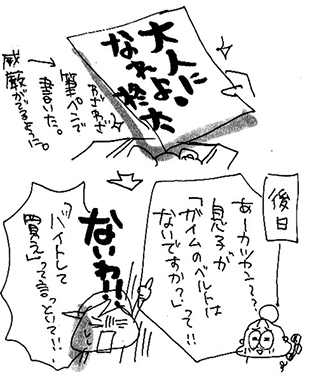 大人に
なれよ。
柊太
わざわざ
筆ペンで
書いた。
威厳がでるように。
後日
あーカッカン~?
息子が
「ガイムのベルトは
ないですか?」って!!
ないわ!!
「バイトして
買え」って言っといて!!